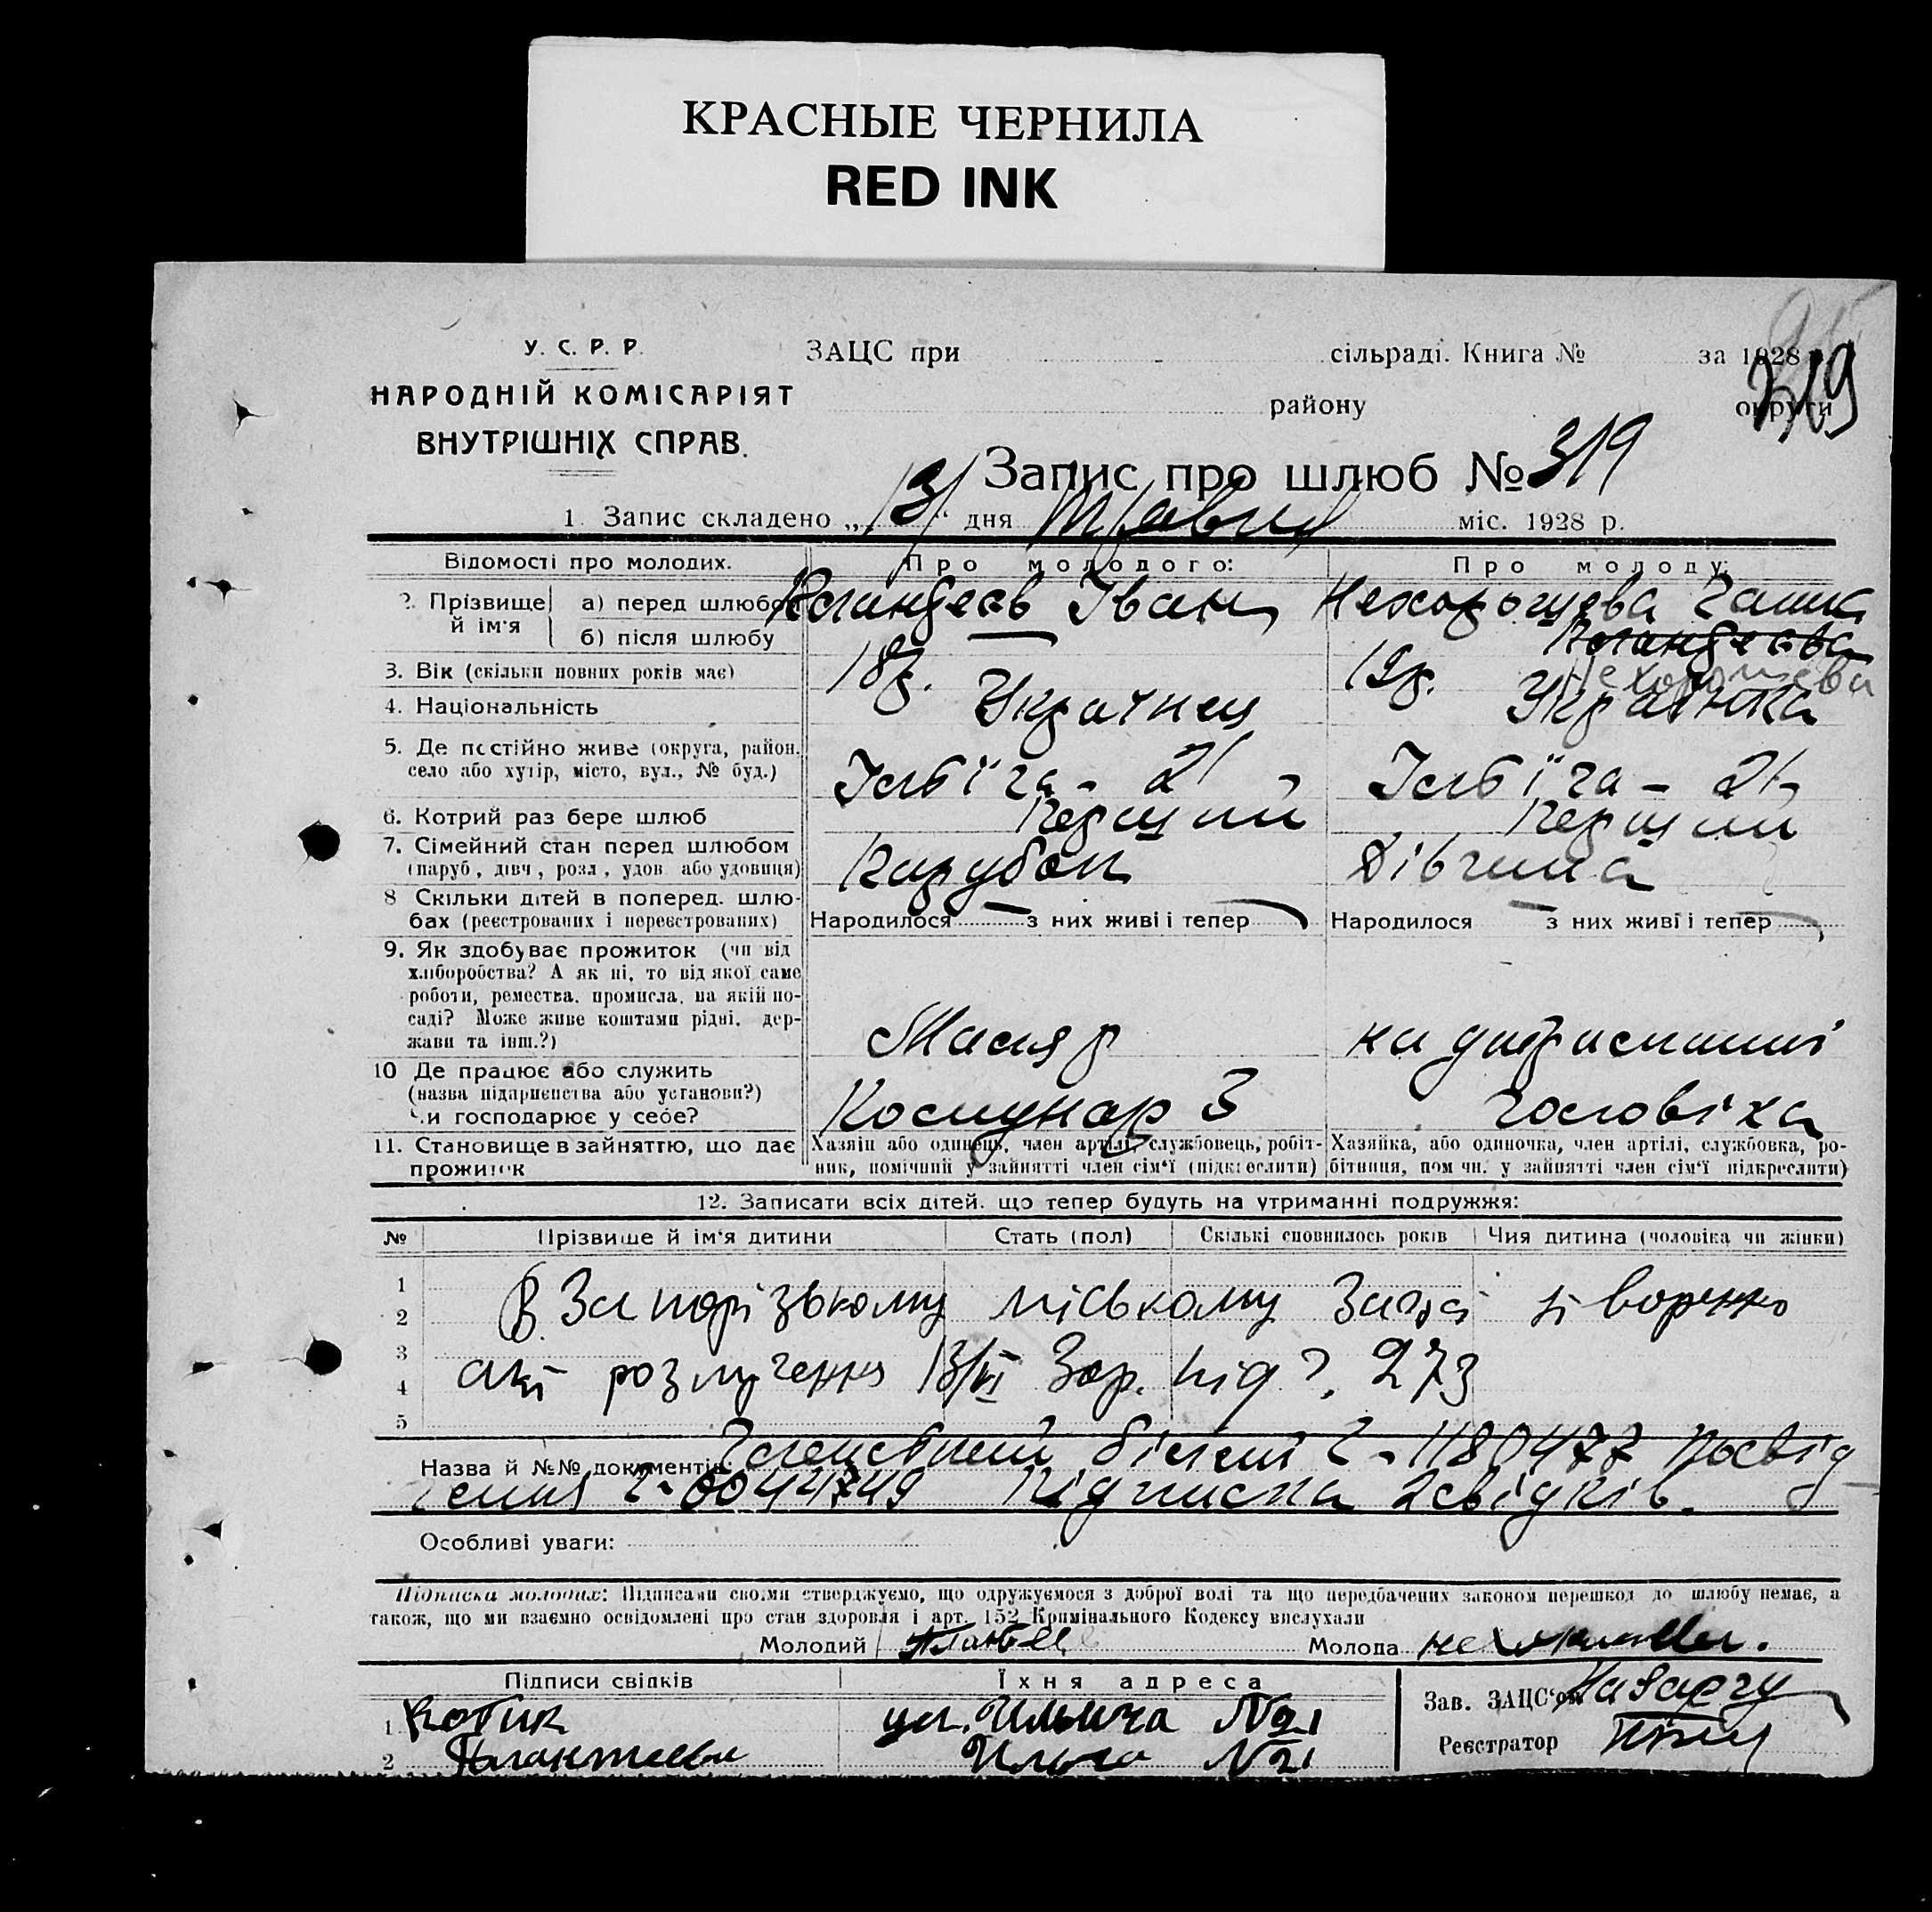 КРАСНЫЕ ЧЕРНИЛА
RED INK
319
У. С. Р. Р.
НАРОДНІЙ КОМІСАРІЯТ
ВНУТРІШНІХ СПРАВ.
ЗАЦС при сільраді. Книга № за 1928 р.
району округи
Запис про шлюб № 319
1. Запис складено „13“ дня Травня міс. 1928 р.
Відомості про молодих. Про молодого: Про молоду:
2. Прізвище й ім'я
а) перед шлюбом Іван Нехорошева
б) після шлюбу
Нехорошева
3. Вік (скільки повних років має) 18р. 19р.
4. Національність Українец Українка
5. Де постійно живе (округа, район.
село або хутір, місто, вул., № буд.) Ілліча - 21 Ілліча - 21
6. Котрий раз бере шлюб Перший Перший
7. Сімейний стан перед шлюбом
(паруб, дівч, розл, удов або удовиця) Парубок Дівчина
8 Скільки дітей в поперед. шлю-
бах (реєстрованих і нереєстрованих) Народилося — з них живі і тепер Народилося — з них живі і тепер
9. Як здобуває прожиток (чи від
хліборобства? А як ні, то від якої саме
роботи, ремества, промисла, на якій по-
саді? Може живе коштами рідні, дер-
жави та інш.?) Маляр на утриманні
10 Де працює або служить
(назва підприємства або установи?)
Чи господарює у себе? Комунар 3 чоловіка
11. Становище в зайняттю, що дає
прожиток
Хазяїн або одинець, член артілі, службовець, робіт-
ник, помічний у зайнятті член сім'ї (підкреслити)
Хазяйка, або одиночка, член артілі, службовка, ро-
бітниця, пом чн. у зайнятті член сім'ї підкреслити)
12. Записати всіх дітей, що тепер будуть на утриманні подружжя:
№ Прізвище й ім'я дитини Стать (пол) Скількі сповнилось років Чия дитина (чоловіка чи жінки)
1
2 В Запорізькому міському Загсі
3
4 акт розлучення 13/VI під 273
5
Назва й №№ документів: Членський білет 1180477 Посвід
чення 0044749 Підписка 2 свідків.
Особливі уваги:
Підписка молодих: Підписами своїми стверджуємо, що одружуємося з доброї волі та що передбачених законом перешкод до шлюбу немає, а
також, що ми взаємно освідомлені про стан здоровля і арт. 152 Кримінального Кодексу вислухали
Молодий Молода
Підписи свідків Їхня адреса
Зав. ЗАЦС'ом
1 Котик ул. Ильича №21
Реєстратор
2 Ильича №21